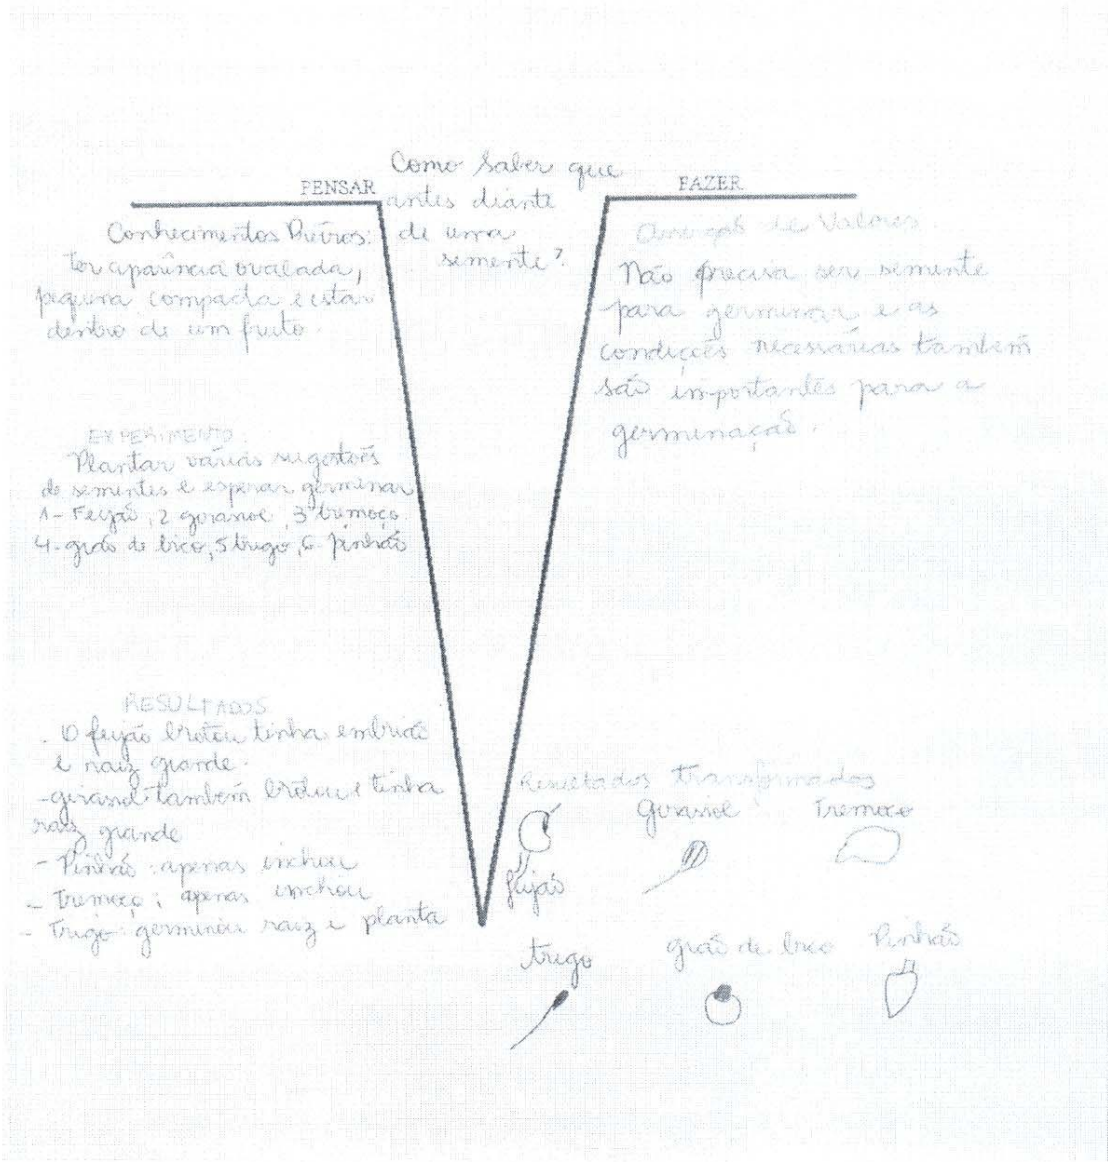 Como saber que
antes diante
de uma
semente?
PENSAR
Conhecimentos Prévios:
ter aparência ovalada,
pequena compacta e estar
dentro de um fruto.
EXPERIMENTO
Plantar várias sugestões
de sementes e esperar germinar
1- Feijão, 2 girassol, 3 tremoço
4- grão de bico, 5 trigo, 6- pinhão
RESULTADOS
- O feijão brotou tinha embrião
e raiz grande.
- girassol também brotou e tinha
raiz grande
- Pinhão: apenas inchou
- Tremoço: apenas inchou
- Trigo: germinou raiz e planta
FAZER
de Valores
Não precisa ser semente
para germinar e as
condições necessárias também
são importantes para a
germinação.
Resultados transformados
Girassol Tremoço
feijão
trigo grão de bico Pinhão